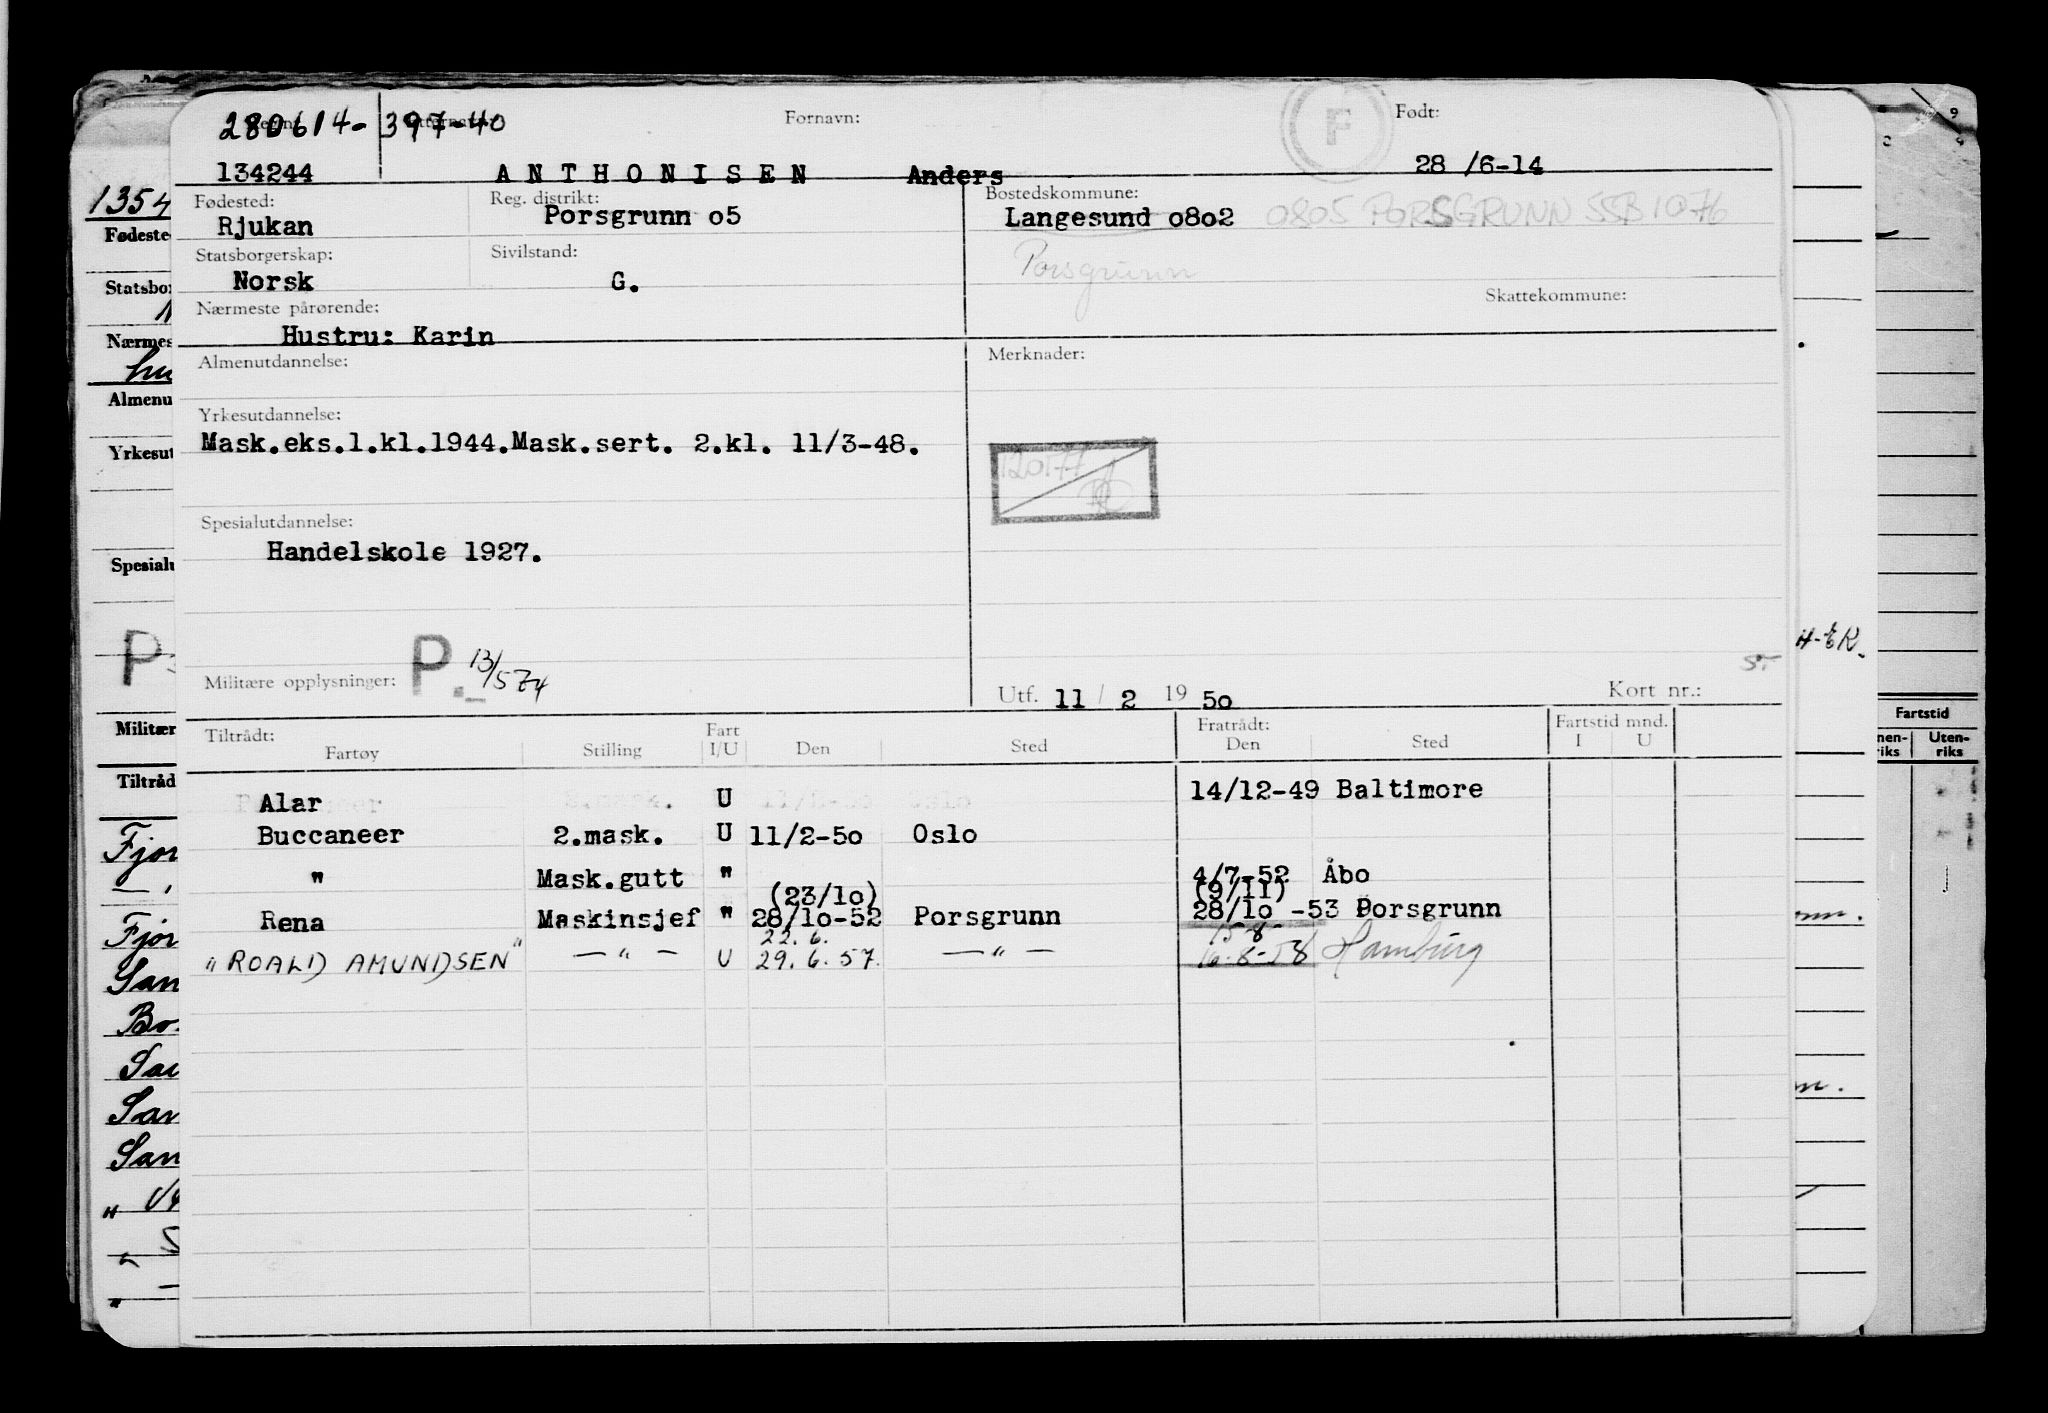 280614- 397-40 Fornavn: F Født:
134244 ANTHONISEN Anders 28 /6-14
Fødested: Reg. distrikt: Bostedskommune:
Rjukan Porsgrunn 05 Langesund 0802 0805 PORSGRUNN SSB 1076
Statsborgerskap: Sivilstand: Porsgrunn
Norsk G.
Nærmeste pårørende: Skattekommune:
Hustru: Karin
Almenutdannelse: Merknader:
Yrkesutdannelse:
Mask.eks.1.kl.1944.Mask.sert. 2.kl. 11/3-48.
120177
Spesialutdannelse:
Handelskole 1927.
Militære opplysninger: P. 13/574
Utf. 11 / 2 19 50 Kort nr.:
Tiltrådt: Fart Fratrådt: Fartstid mnd.
Fartøy Stilling I/U Den Sted Den Sted I U
Alar U 14/12-49 Baltimore
Buccaneer 2.mask. U 11/2-50 Oslo
" Mask.gutt " 4/7-52 Åbo
(23/10) (9/11)
Rena Maskinsjef " 28/10-52 Porsgrunn 28/10 -53 Porsgrunn
22.6. 15-8-
"ROALD AMUNDSEN" — " — U 29.6.57. — " — 16-8-58 Hamburg
1354
Fødeste
Statsbo
Nærmes
hu
Almenu
Yrkesut
Spesialu
P
Militær
Tiltråd
Fjor
Fjor
San
Bo
Sa
San
San
H-ER.
Fartstid
nen-riks Uten-riks